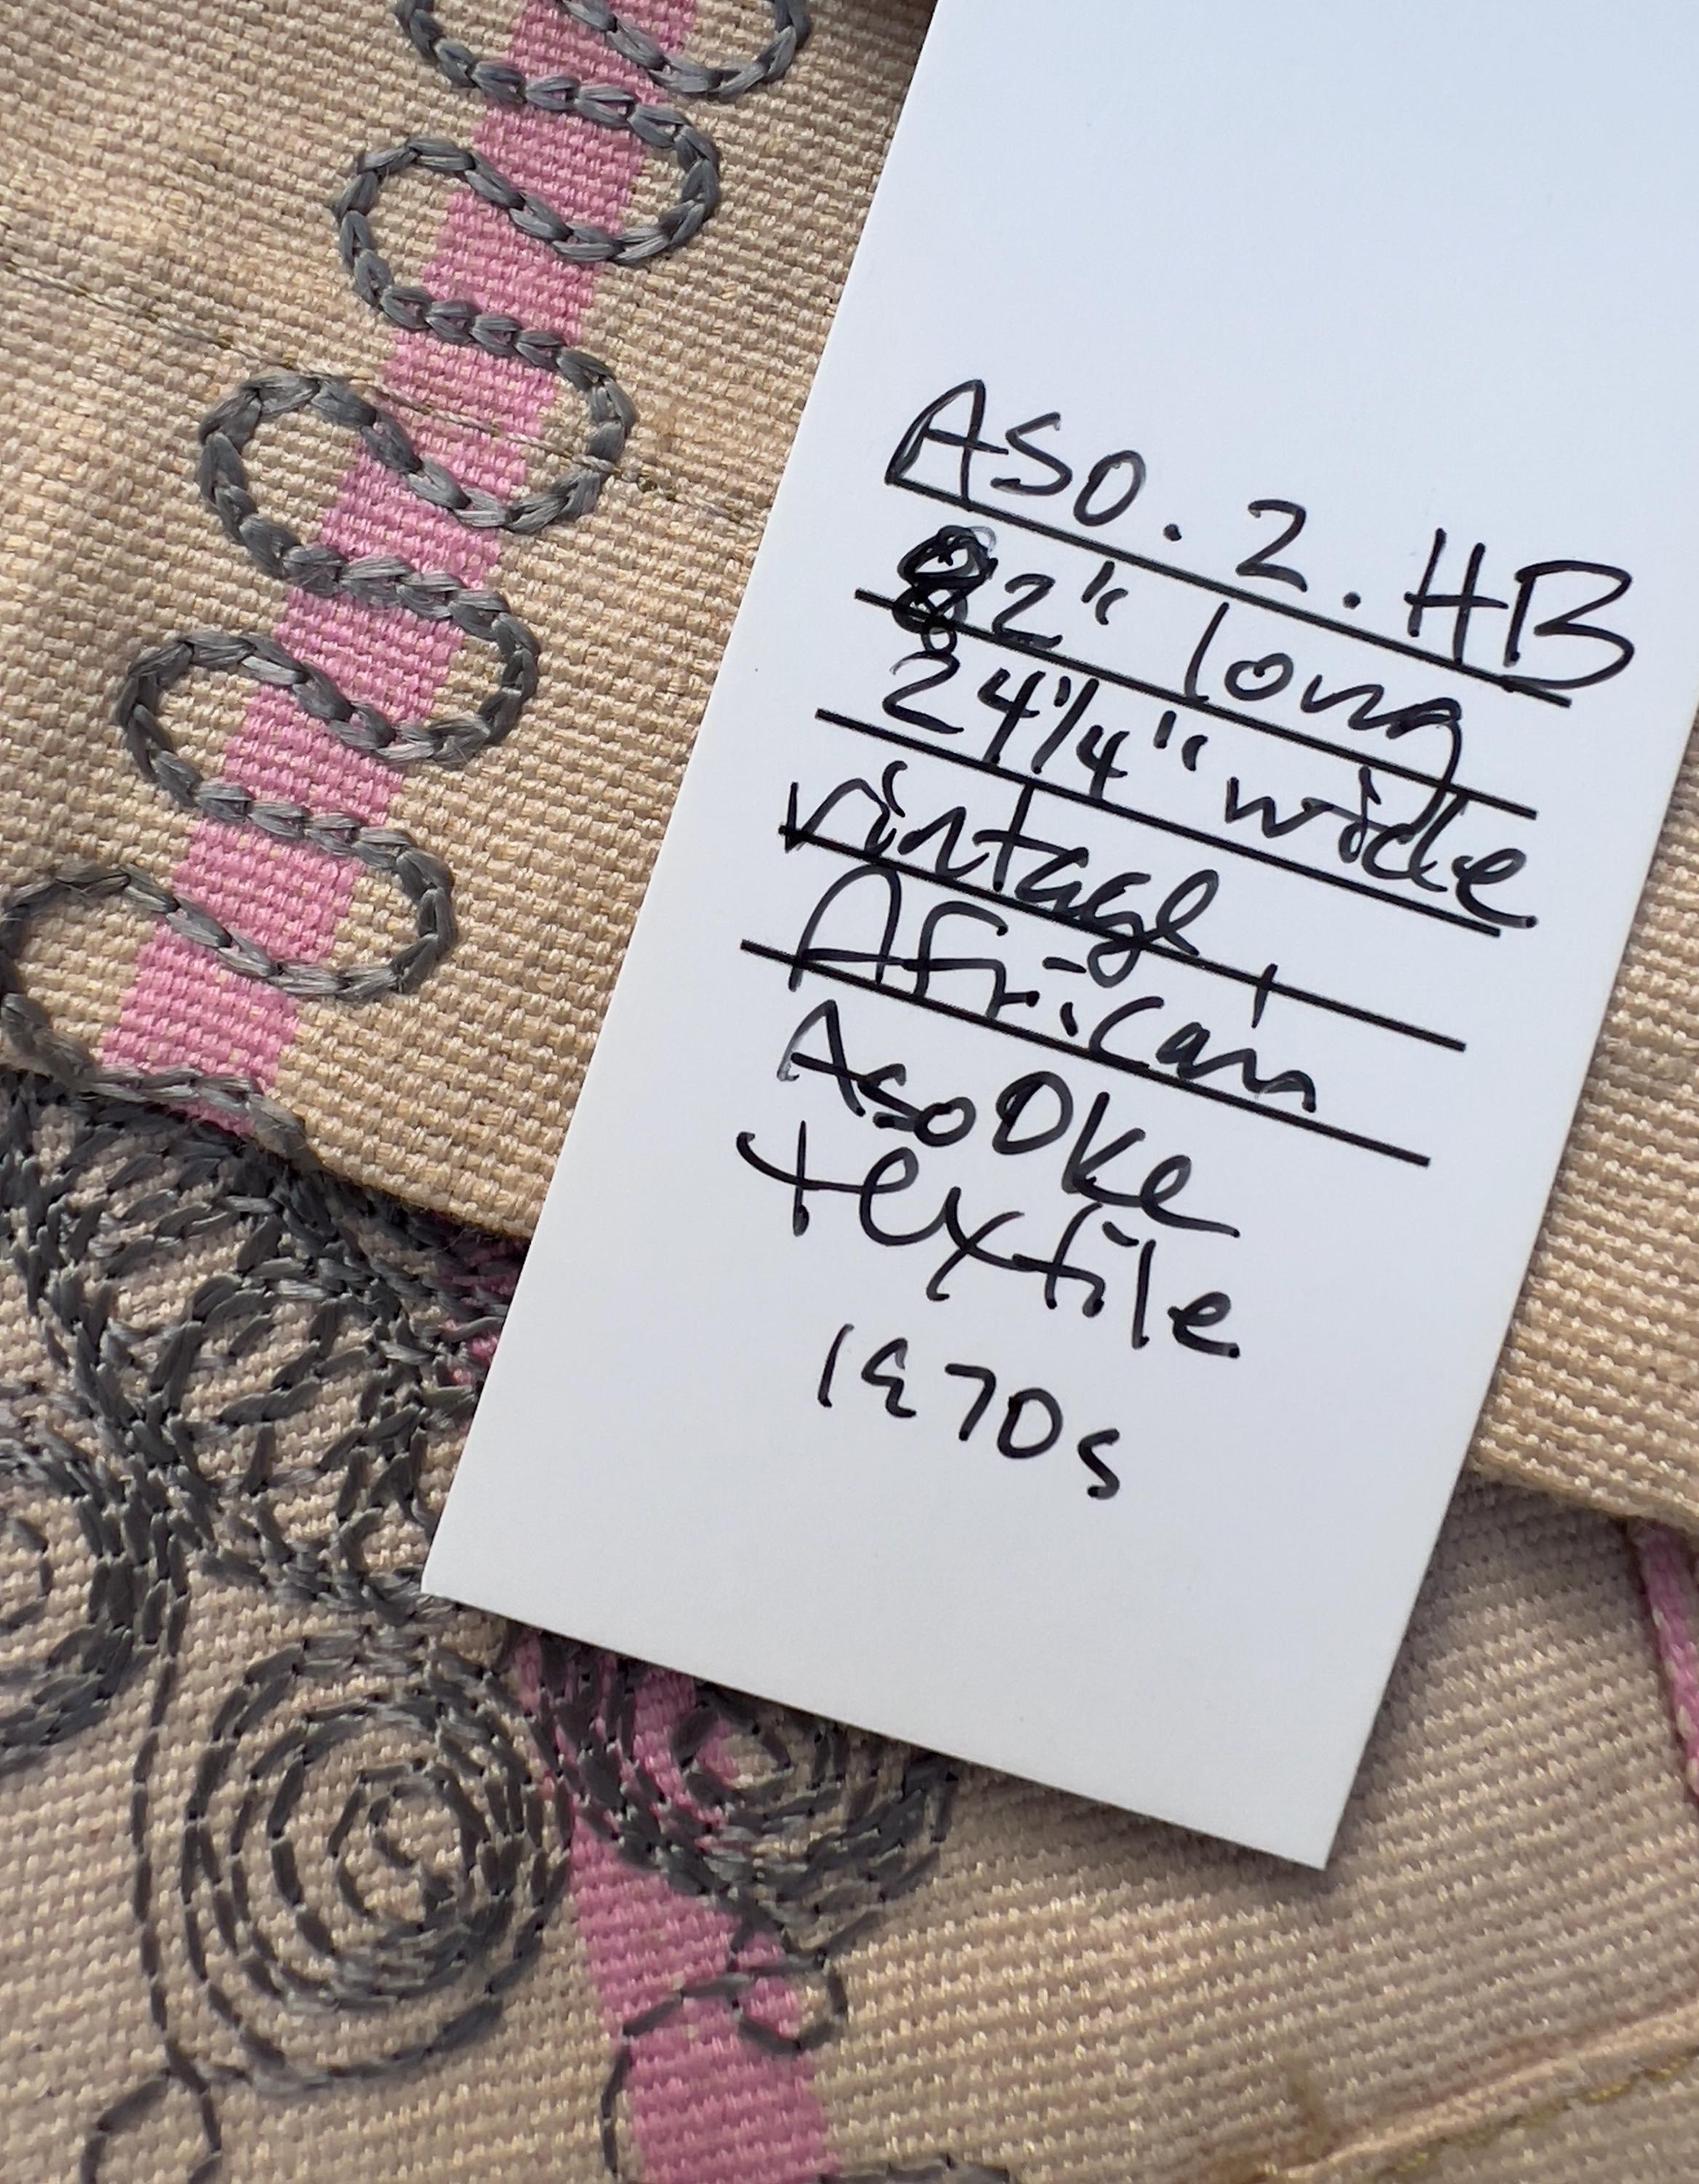 ASO.2.HB
82" long
24 1/4" wide
vintage
African
Aso Oke
textile
1970s